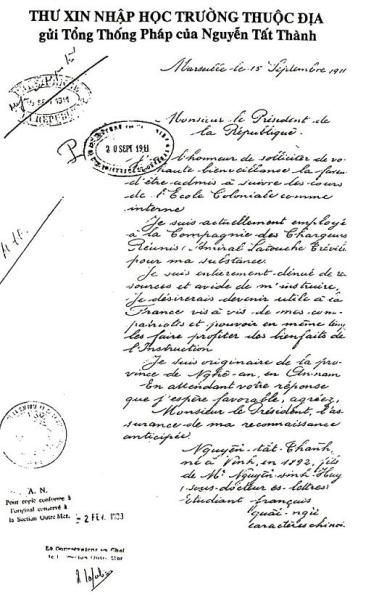 THƯ XIN NHẬP HỌC TRƯỜNG THUỘC ĐỊA
gửi Tổng Thống Pháp của Nguyễn Tất Thành
Marseille le 15 Septembre 1911
Monsieur le Président de
la République.
20 SEPT 1911
J'ai l'honneur de solliciter de vo
haute bienveillance la faveur
d'être admis à suivre les cours
de l'Ecole Coloniale comme
interne
Je suis actuellement employé
à la Compagnie des Chargeurs
Réunis: Amiral Latouche Tréville
pour ma substance
Je suis entièrement dénué de re
sources et avide de m'instruire.
Je désirerais devenir utile à la
France vis à vis de mes com-
patriotes et pouvoir en même temps
les faire profiter des bienfaits de
l'Instruction
Je suis originaire de la pro
vince de Nghê-an, en Annam
En attendant votre réponse
que j'espère favorable, agréez,
Monsieur le Président, l'as
surance de ma reconnaissance
anticipée
Nguyễn-tất-Thanh,
né à Vinh, en 1892, fils
de Mr Nguyễn-sinh-Huy
(sous-docteur ès-lettres)
Etudiant français
quốc-ngữ
caractères chinois.
A. N.
Pour copie conforme à
l'original conservé à
la Section Outre-Mer.
Le Conservateur en Chef